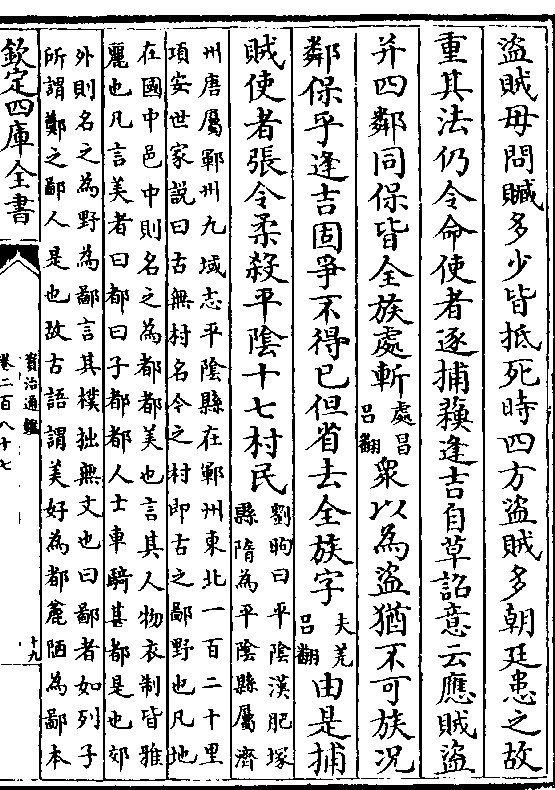 盜賊毋問贓多少皆抵死時四方盜賊多朝廷患之故
重其法仍令命使者逐捕蘓逢吉自草詔意云應賊盜
并四鄰同保皆全族處斬處昌呂翻衆以為盜猶不可族況
鄰保乎逢吉固爭不得已但省去全族字夫羌呂翻由是捕
賊使者張令柔殺平隂十七村民劉昫曰平隂漢肥塚縣隋為平隂縣屬濟
州唐屬鄆州九域志平隂縣在鄆州東北一百二十里
項安世家説曰古無村名今之村即古之鄙野也凡地
在國中邑中則名之為都都美也言其人物衣制皆雅
麗也凡言美者曰都曰子都都人士車騎甚都是也郊
外則名之為野為鄙言其樸拙無文也曰鄙者如列子
所謂鄭之鄙人是也故古語謂美好為都麄陋為鄙本
欽定四庫全書
資治通鑑
卷二百八十七
十九